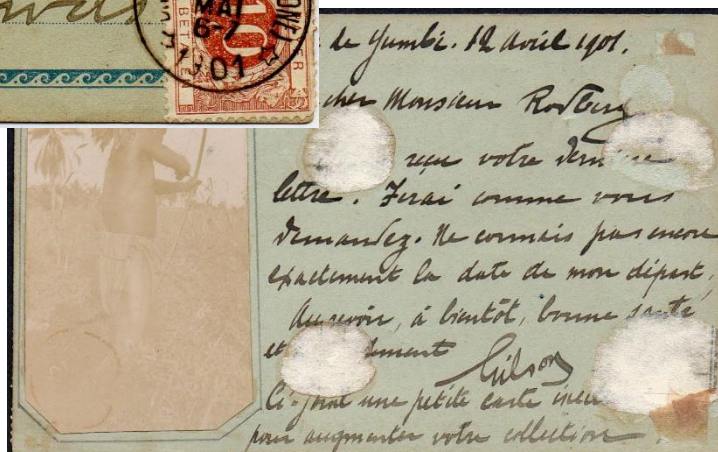 MAI
6-7
01
10
BETALEN
de Yumbi. 12 avril 1901.
cher Monsieur
reçu votre dernière
lettre. Ferai comme vous
demandez. Ne connais pas encore
exactement la date de mon départ.
Au revoir, à bientôt, bonne santé
et
Gilson
Ci-joint une petite carte
pour augmenter votre collection.